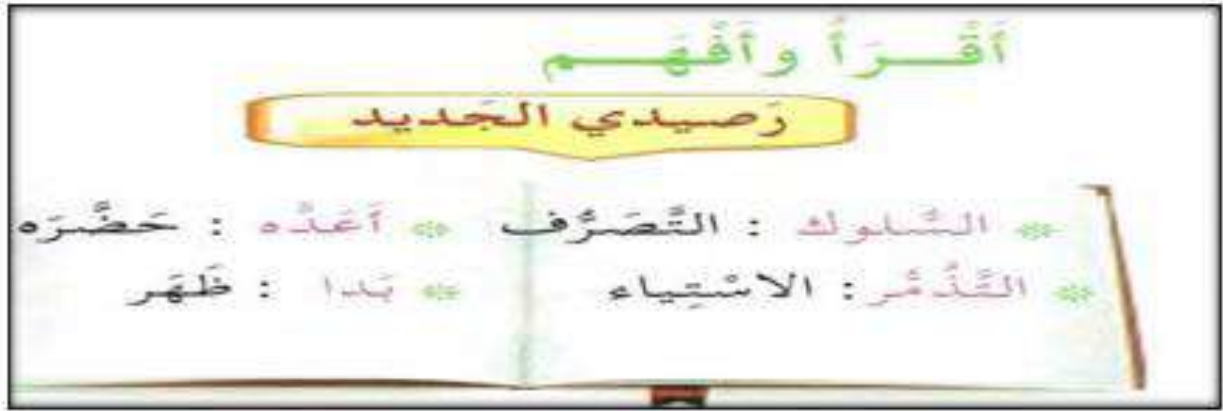 أَقْـــرَأُ وأَفْهَـــم
رَصيدي الجَديد
السُّلوك : التَّصَرُّف * أَعَدَّه : حَضَّرَه *
التَّذَمُّر : الاسْتِياء * بَدا : ظَهَر *